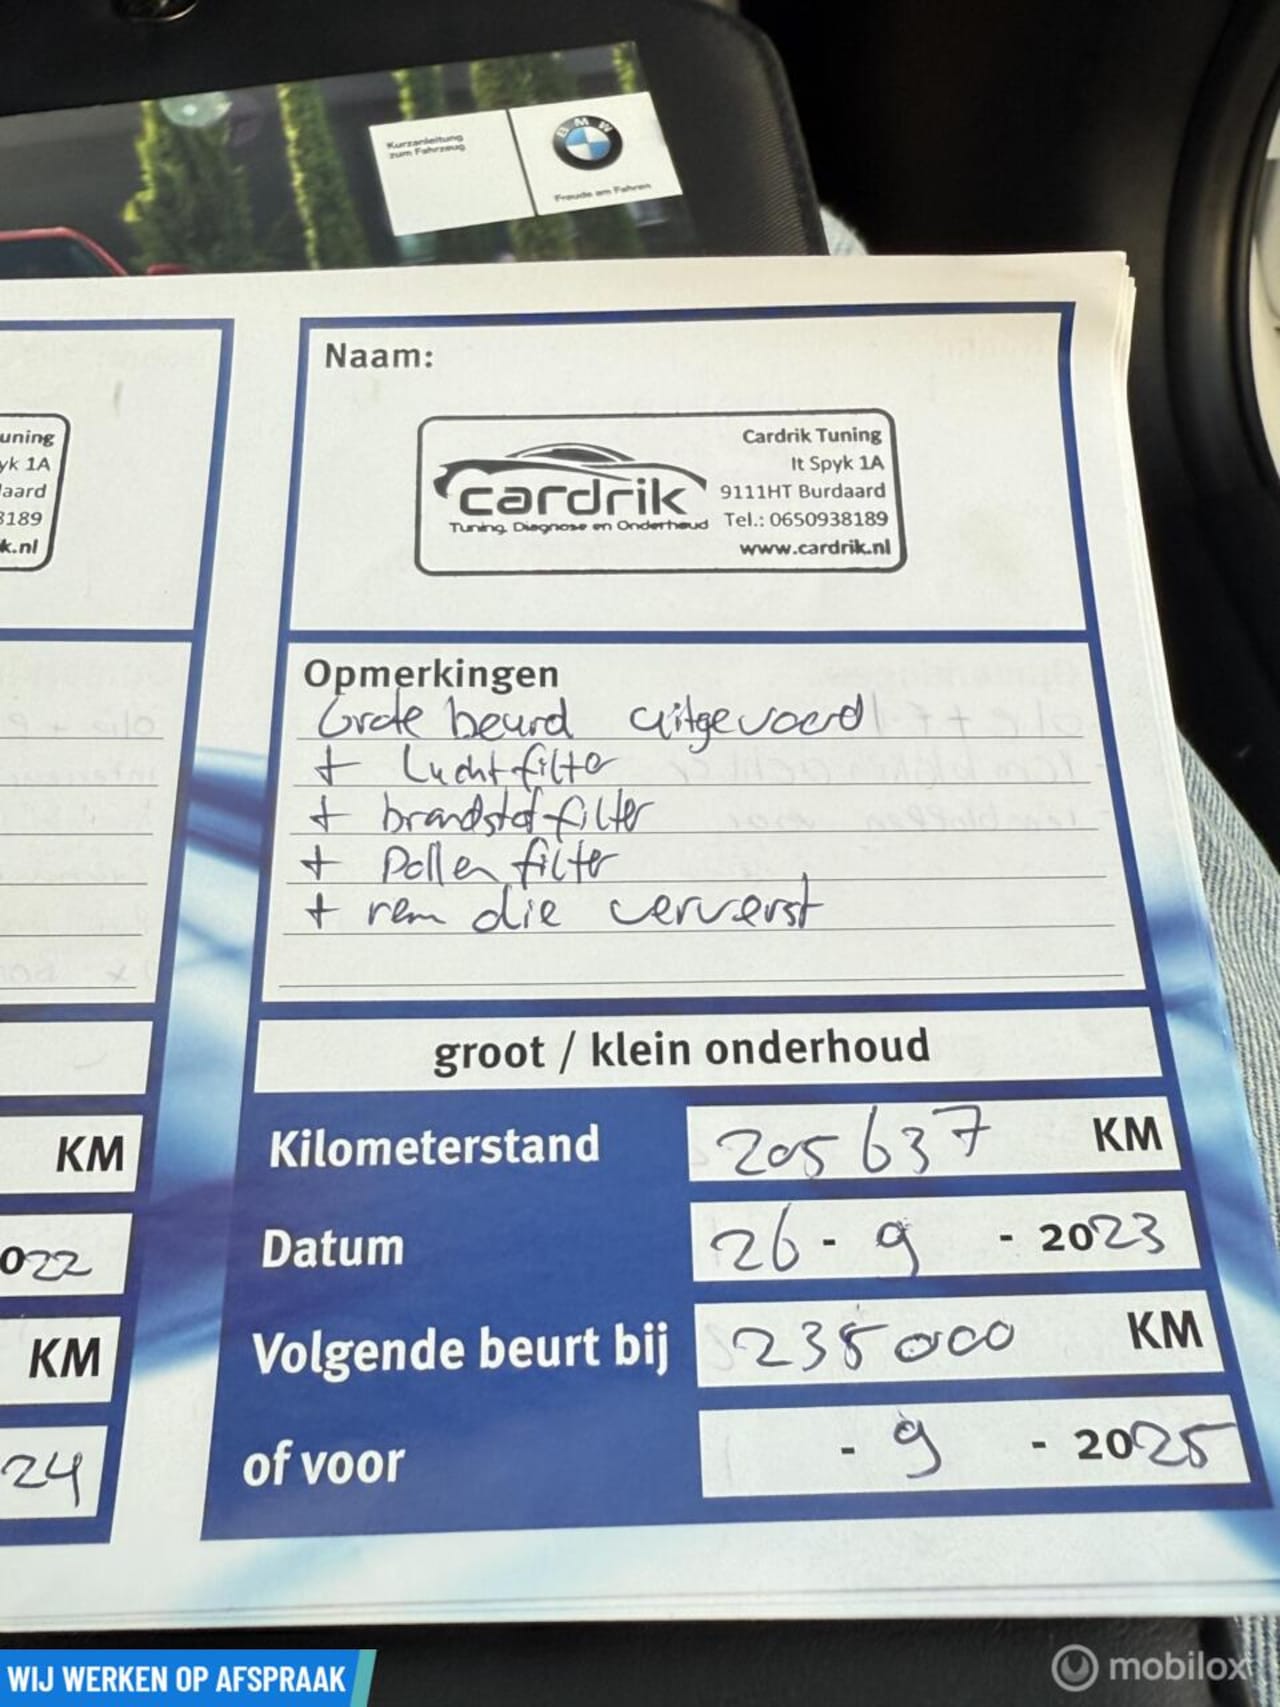 Kurzanleitung
zum Fahrzeug
BMW
Freude am Fahren
uning
yk 1A
aard
8189
k.nl
KM
022
KM
24
Naam:
cardrik
Tuning, Diagnose en Onderhoud
Cardrik Tuning
It Spyk 1A
9111HT Burdaard
Tel.: 0650938189
www.cardrik.nl
Opmerkingen
Grote beurd uitgevoerd
+ Luchtfilter
+ brandstof filter
+ Pollen filter
+ rem olie ververst
groot / klein onderhoud
Kilometerstand 205637 KM
Datum 26 - 9 - 2023
Volgende beurt bij 235000 KM
of voor - 9 - 2025
WIJ WERKEN OP AFSPRAAK
mobilox